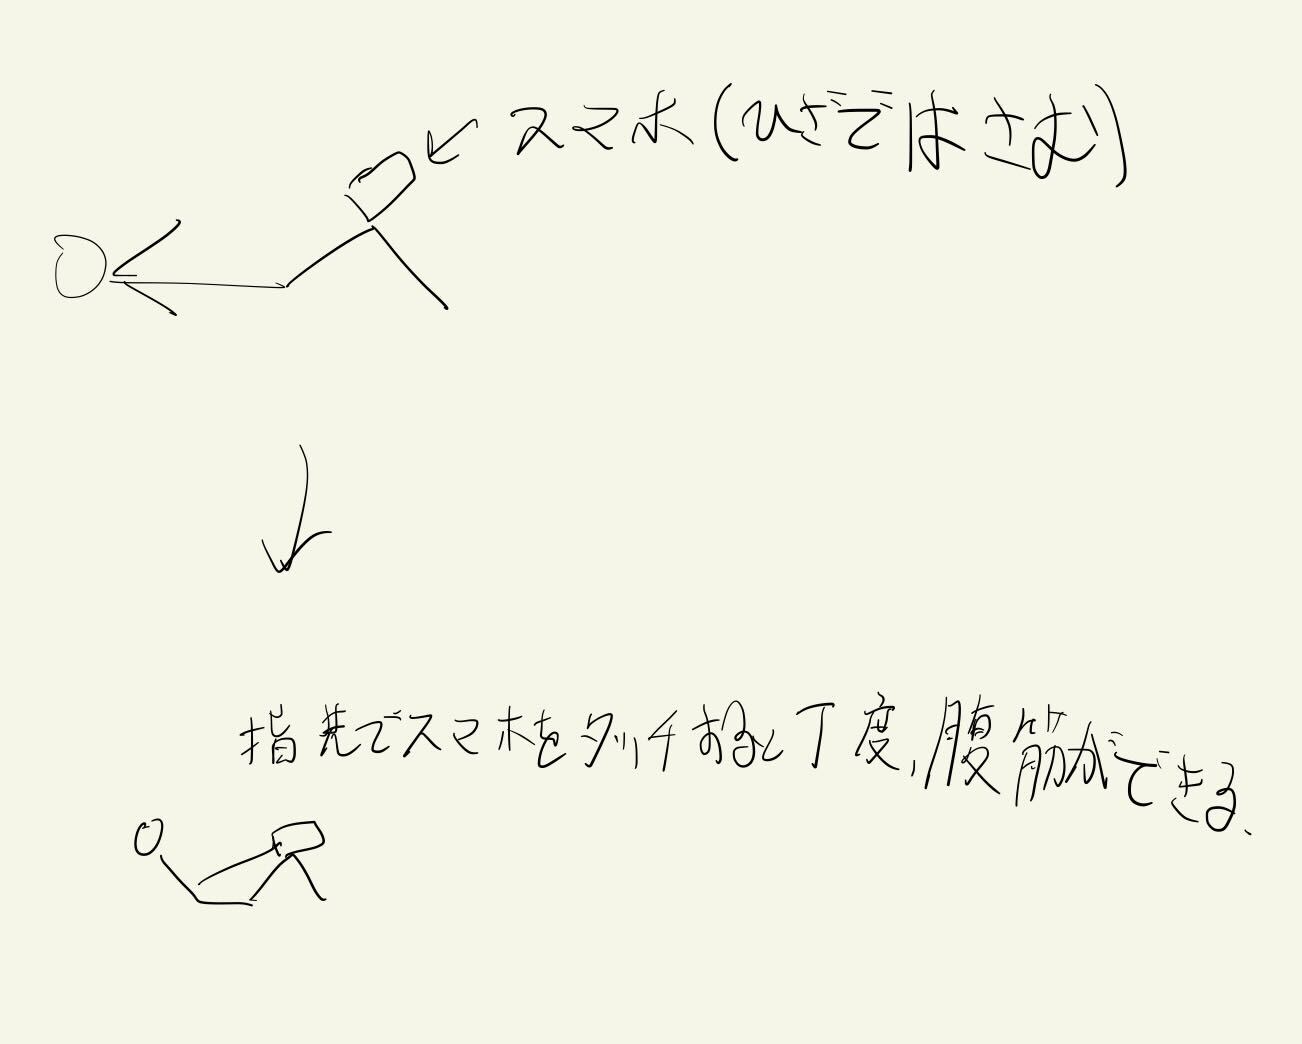 スマホ(ひざではさむ)
指先でスマホをタッチすると丁度,腹筋ができる、